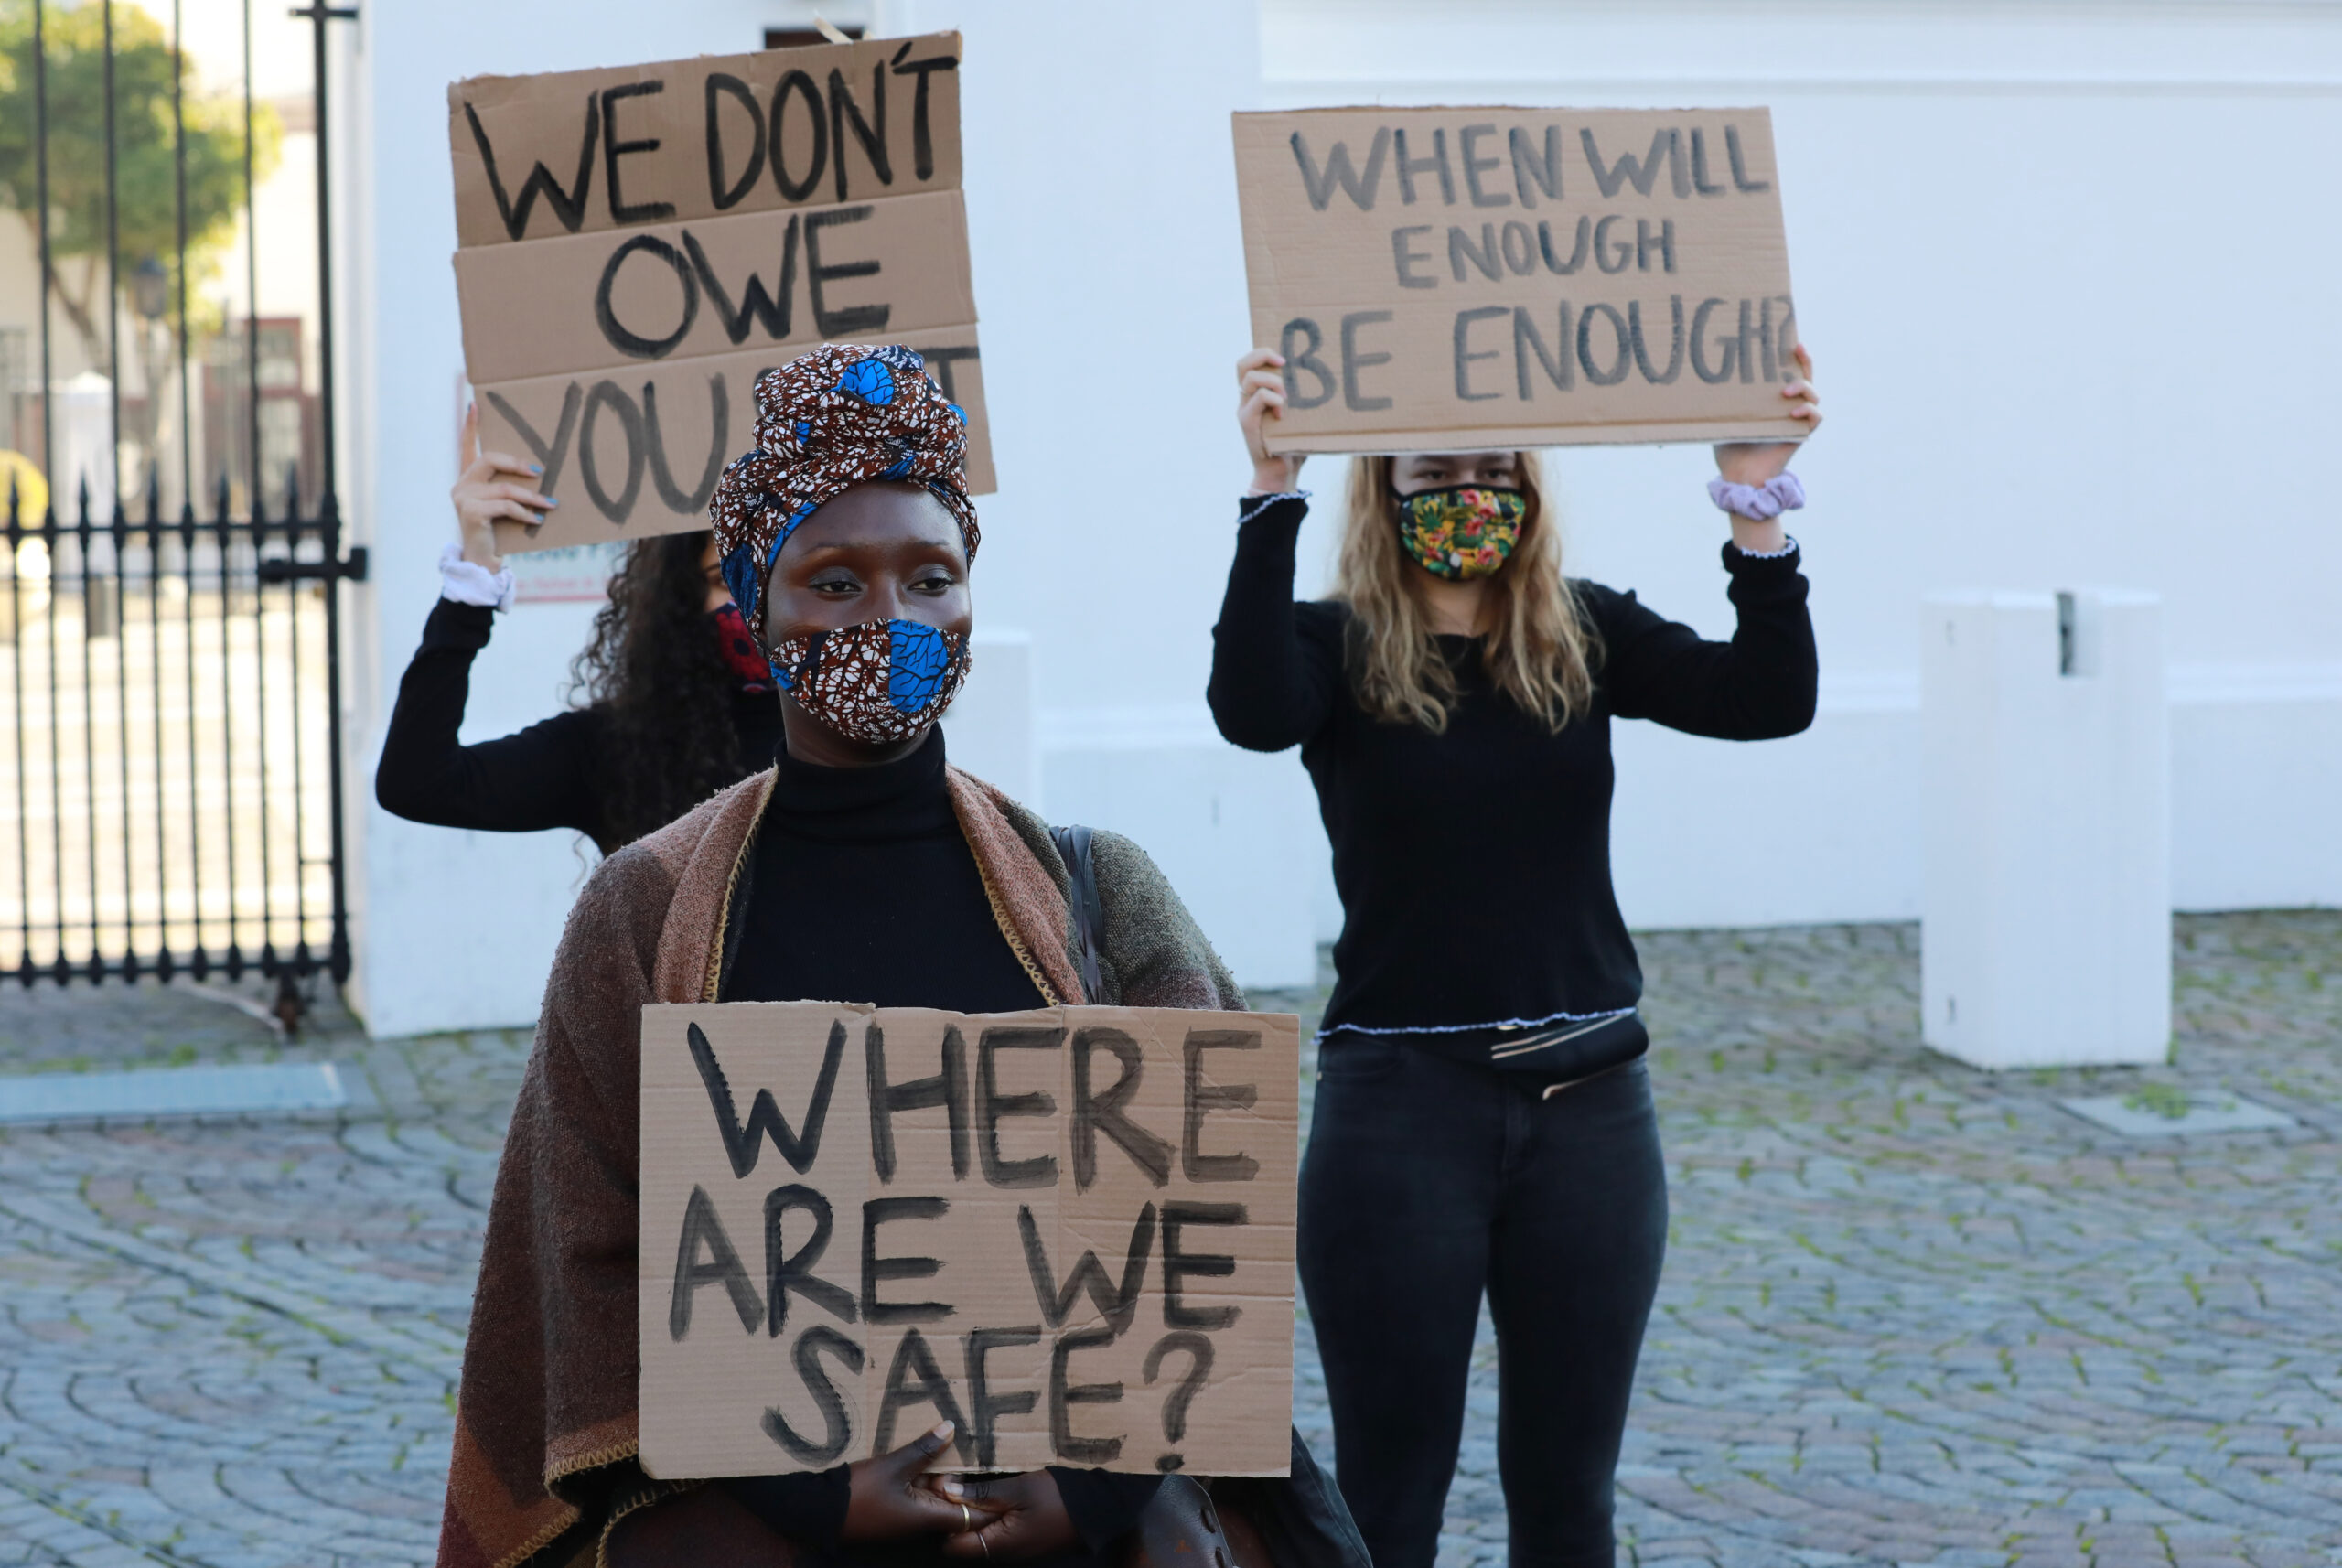 WE DON'T
OWE
YOU
WHEN WILL
ENOUGH
BE ENOUGH?
WHERE
ARE WE
SAFE?